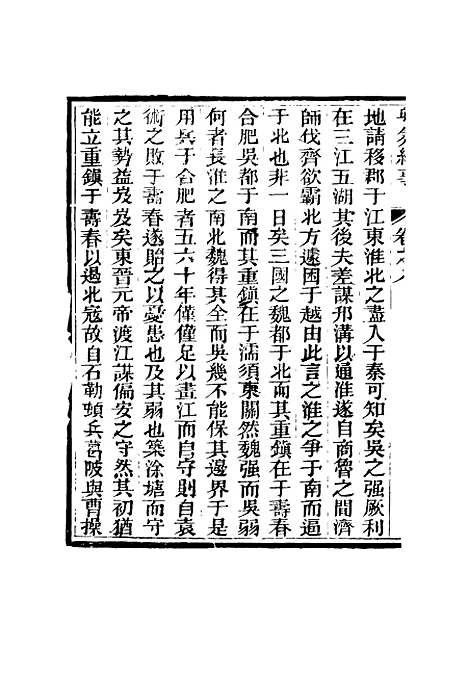 卷之八
地請移郡于江東淮北之盡入于秦可知矣吳之强厥利
在三江五湖其後夫差謀邗溝以通淮遂自商魯之間濟
師伐齊欲霸北方遽困于越由此言之淮之爭于南而逼
于北也非一日矣三國之魏都于北而其重鎮在于壽春
合肥吳都于南而其重鎮在于濡須東關然魏强而吳弱
何者長淮之南北魏得其全而吳幾不能保其邊界于是
用兵于合肥者五六十年僅僅足以畫江而自守則自袁
術之敗于壽春遂貽之以憂患也及其弱也築涂塘而守
之其勢益岌岌矣東晉元帝渡江謀偏安之守然其初猶
能立重鎮于壽春以遏北寇故自石勒頓兵葛陂與曹操